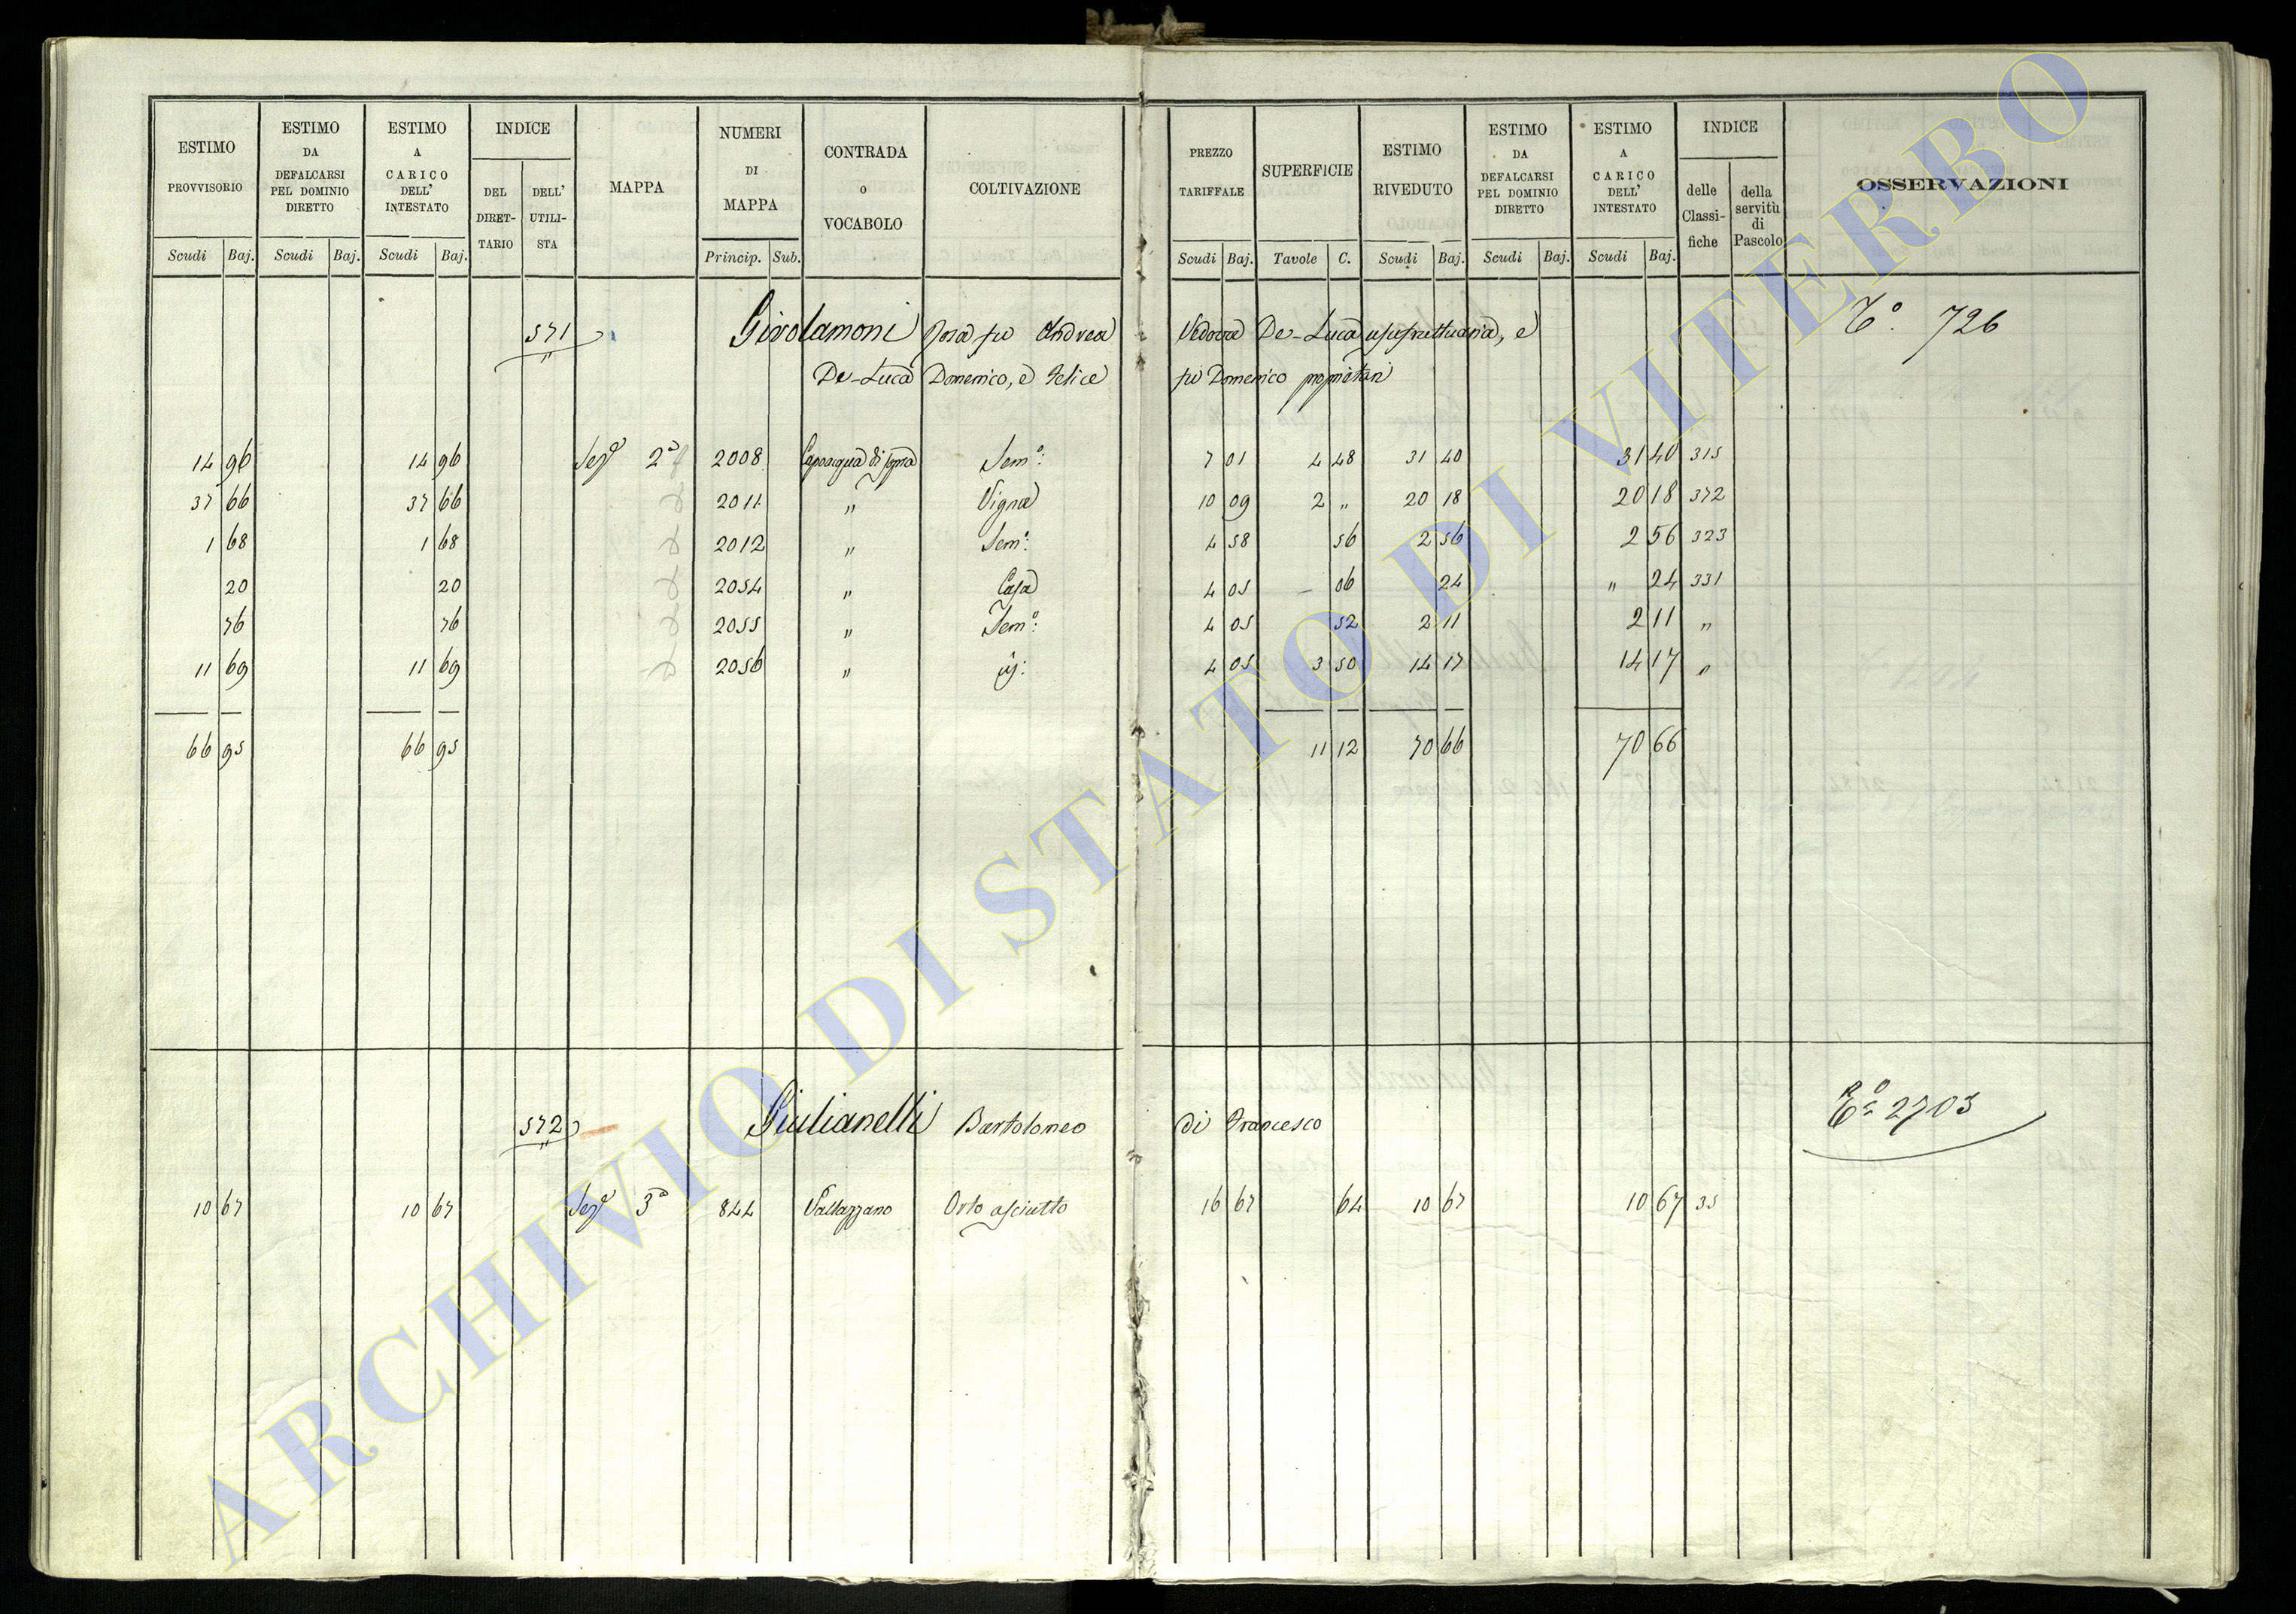 ESTIMO PROVVISORIO | ESTIMO DA DEFALCARSI PEL DOMINIO DIRETTO | ESTIMO A CARICO DELL' INTESTATO | INDICE | MAPPA | NUMERI DI MAPPA | CONTRADA O VOCABOLO | COLTIVAZIONE | PREZZO TARIFFALE | SUPERFICIE | ESTIMO RIVEDUTO | ESTIMO DA DEFALCARSI PEL DOMINIO DIRETTO | ESTIMO A CARICO DELL' INTESTATO | INDICE | OSSERVAZIONI
DEL DIRET-TARIO | DELL' UTILI-STA | delle Classi-fiche | della servitù di Pascolo
Scudi | Baj. | Scudi | Baj. | Scudi | Baj. | Princip. | Sub. | Scudi | Baj. | Tavole | C. | Scudi | Baj. | Scudi | Baj. | Scudi | Baj.
571 Girolamoni Rosa fu Andrea Vedova De-Luca usufruttuaria, e Tº. 726
De-Luca Domenico, e Felice fu Domenico proprietari
14 96 | 14 96 | Sezª 2ª | 2008 | Capoacqua di sopra | Semº: | 7 01 | 4 48 | 31 40 | 31 40 | 315
37 66 | 37 66 | 2011 | " | Vigna | 10 09 | 2 " | 20 18 | 20 18 | 372
1 68 | 1 68 | 2012 | " | Semº: | 4 58 | 56 | 2 56 | 2 56 | 323
20 | 20 | 2054 | " | Casa | 4 05 | – 06 | 24 | " 24 | 331
76 | 76 | 2055 | " | Semº: | 4 05 | 52 | 2 11 | 2 11 | "
11 69 | 11 69 | 2056 | " | | 4 05 | 3 50 | 14 17 | 14 17 | "
66 95 | 66 95 | 11 12 | 70 66 | 70 66
572 Giulianelli Bartolomeo di Francesco Tº 2703
10 67 | 10 67 | Sezª 3ª | 844 | Vallazzano | Orto asciutto | 16 67 | 64 | 10 67 | 10 67 | 35
ARCHIVIO DI STATO DI VITERBO